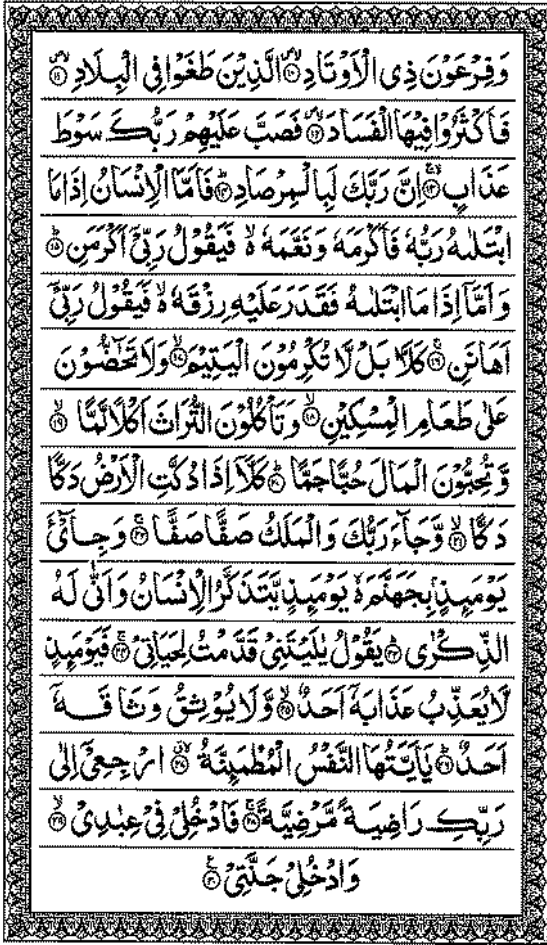 وَفِرْعَوْنَ ذِی الْاَوْتَادِ ۙ﴿۱۰﴾ الَّذِیْنَ طَغَوْا فِی الْبِلَادِ ۙ﴿۱۱﴾
فَاَكْثَرُوْا فِیْهَا الْفَسَادَ ۙ﴿۱۲﴾ فَصَبَّ عَلَیْهِمْ رَبُّكَ سَوْطَ
عَذَابٍ ۚۙ﴿۱۳﴾ اِنَّ رَبَّكَ لَبِالْمِرْصَادِ ؕ﴿۱۴﴾ فَاَمَّا الْاِنْسَانُ اِذَا مَا
ابْتَلٰىهُ رَبُّهٗ فَاَكْرَمَهٗ وَنَعَّمَهٗ ۙ۬ فَیَقُوْلُ رَبِّیْۤ اَكْرَمَنِ ؕ﴿۱۵﴾
وَاَمَّاۤ اِذَا مَا ابْتَلٰىهُ فَقَدَرَ عَلَیْهِ رِزْقَهٗ ۙ۬ فَیَقُوْلُ رَبِّیْۤ
اَهَانَنِ ۚ﴿۱۶﴾ كَلَّا بَلْ لَّا تُكْرِمُوْنَ الْیَتِیْمَ ۙ﴿۱۷﴾ وَلَا تَحٰٓضُّوْنَ
عَلٰی طَعَامِ الْمِسْكِیْنِ ۙ﴿۱۸﴾ وَتَاْكُلُوْنَ التُّرَاثَ اَكْلًا لَّمًّا ۙ﴿۱۹﴾
وَّتُحِبُّوْنَ الْمَالَ حُبًّا جَمًّا ؕ﴿۲۰﴾ كَلَّاۤ اِذَا دُكَّتِ الْاَرْضُ دَكًّا
دَكًّا ۙ﴿۲۱﴾ وَّجَآءَ رَبُّكَ وَالْمَلَكُ صَفًّا صَفًّا ۚ﴿۲۲﴾ وَجِایْٓءَ
یَوْمَىِٕذٍۭ بِجَهَنَّمَ ۙ۬ یَوْمَىِٕذٍ یَّتَذَكَّرُ الْاِنْسَانُ وَاَنّٰی لَهُ
الذِّكْرٰی ؕ﴿۲۳﴾ یَقُوْلُ یٰلَیْتَنِیْ قَدَّمْتُ لِحَیَاتِیْ ۚ﴿۲۴﴾ فَیَوْمَىِٕذٍ
لَّا یُعَذِّبُ عَذَابَهٗۤ اَحَدٌ ۙ﴿۲۵﴾ وَّلَا یُوْثِقُ وَثَاقَهٗۤ
اَحَدٌ ؕ﴿۲۶﴾ یٰۤاَیَّتُهَا النَّفْسُ الْمُطْمَىِٕنَّةُ ۗۙ﴿۲۷﴾ ارْجِعِیْۤ اِلٰی
رَبِّكِ رَاضِیَةً مَّرْضِیَّةً ۚ﴿۲۸﴾ فَادْخُلِیْ فِیْ عِبٰدِیْ ۙ﴿۲۹﴾
وَادْخُلِیْ جَنَّتِیْ ۠﴿۳۰﴾